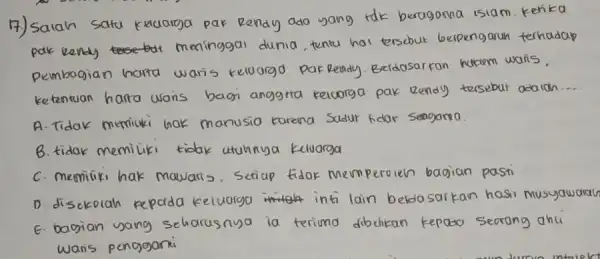 17) Salah satu keluarga pak Rendy ada yang tdk beragama islam. ketika
pak Rendy meninggal dunia, tentu hal tersebut berpengaruh terhadap
pembagian harta waris keluarga pak Rendy. Berdasarkan hukum waris,
ketentuan harta waris bagi anggota keluarga pak Rendy tersebut adalah....
A. Tidak memiliki hak manusia karena sudur tidak seagama.
B. tidak memiliki tidak utuhnya keluarga
C. memiliki hak mawaris, setiap tidak memperoleh bagian pasti
D diserahkan kepada keluarga inti lain berdasarkan hasil musyawarah
E. bagian yang seharusnya ia terima diberikan kepada seorang ahli
waris pengganti